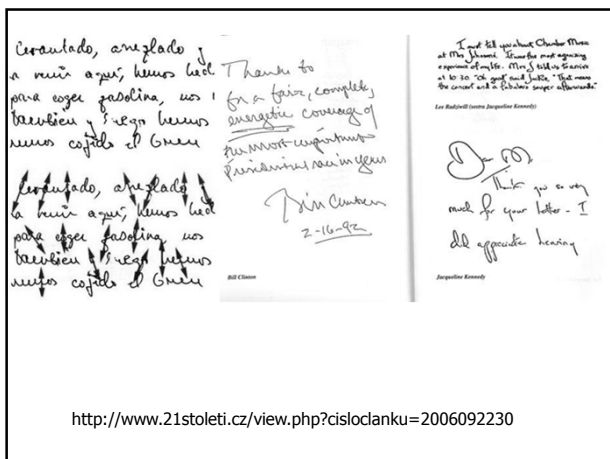 Levantado, arreglado y
a venir aquí, hemos hed
para coger gasolina, nos
y luego hemos
hemos cogido el Gmeu
Levantado, arreglado
a venir aquí, hemos hed
para coger gasolina, nos
y luego hemos
hemos cogido el Gmeu
Thanks to
for a fair, complete,
energetic coverage of
the most important
Presidential race in years
Bill Clinton
2-16-92
Bill Clinton
I must tell you about Chamber Music
at Mrs Johnsons. It was the most agonizing
experience of my life. Mrs J told us to arrive
at 10:30. "Oh good" said Jackie, "That means
the concert and a fabulous supper afterwards"
Lee Radziwill (sestra Jacqueline Kennedy)
Dear
Thank you so very
much for your letter - I
did appreciate hearing
Jacqueline Kennedy
http://www.21stoleti.cz/view.php?cisloclanku=2006092230